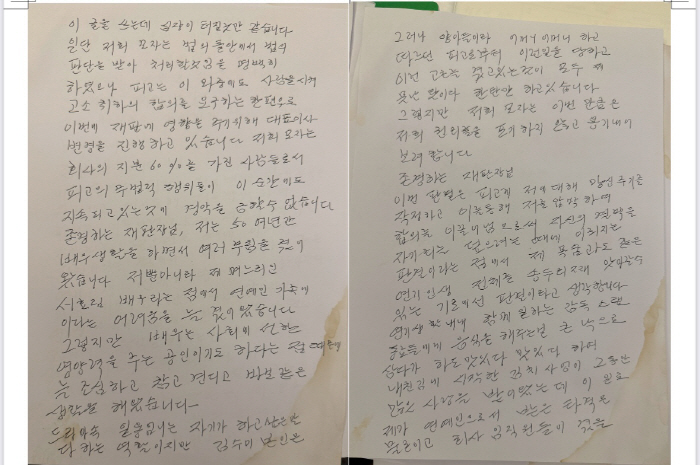 이 글을 쓰는데 심장이 터질것만 같습니다
일단 저희 모자는 법의 틀안에서 법의
판단을 받아 처리할것임을 명백히
하였으나 피고는 이 와중에도 사람을 시켜
고소 취하와 합의를 요구하는 한편으로
이번에 재판에 영향을 주기위해 대표이사
변경을 진행하고 있습니다 저희 모자는
회사의 지분 60%를 가진 사람들로서
피고의 행위들이 이 순간에도
지속되고있는것에 경악을 금할수 없습니다
존경하는 재판장님, 저는 50여년간
배우생활을 하면서 여러 부침을 겪어
왔습니다 저뿐아니라 제 며느리인
서효림 배우라는 점에서 연예인 가족에
이라는 어려움을 늘 겪어왔습니다
그렇지만 배우는 사회에 선한
영향력을 주는 공인이기도 하다는 점 때문에
늘 조심하고 참고 견디고 바보같은
생활을 해왔습니다
드라마속 일용엄니는 자기가 하고싶은말
다 하는 역할이지만 김수미 본인은
그러나 양아들이라 어머니 어머니 하고
따르던 피고로부터 이런일을 당하고
이런 고초를 겪고있는것이 모두 제
못난 탓이다 한탄만 하고있습니다
그렇지만 저희 모자는 이번 만큼은
저희 권리를 포기하지 않고 용기내어
보려 합니다
존경하는 재판장님
이번 판결은 피고가 저에 대해 망신주기를
작정하고 이를통해 저를 압박하여
합의를 이끌어냄으로써 자신의 잘못을
덮으려는 때에 이뤄지는
판결이라는 점에서 제 목숨과도 같은
연기 인생 전체를 송두리째 앗아갈수
있는 기로에선 판결이라고 생각합니다
연기생활 내내 함께 일하는 감독 스탭
동료들에게 음식을 해주는걸 큰 낙으로
살다가 하도 맛있다 맛있다 하여
내친김에 시작한 김치 사업이 그동안
많은 사랑을 받아왔는데 이 일로
제가 연예인으로서 받는 타격은
물론이고 회사 임직원들이 겪을